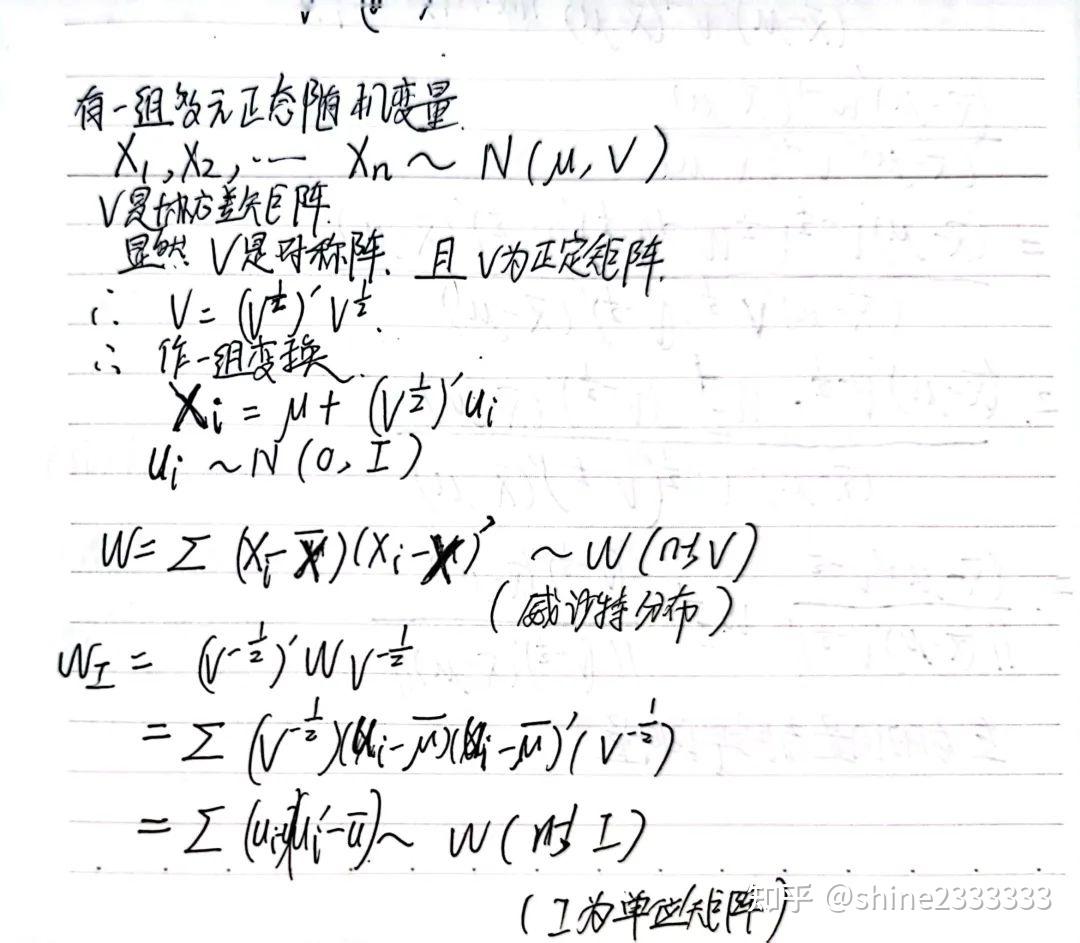 有一组多元正态随机变量.
X₁, X₂, ⋯ Xₙ ~ N(μ, V)
V是协方差矩阵.
显然 V是对称阵. 且 V为正定矩阵.
∴ V = (V^{1/2})′ V^{1/2}.
∴ 作一组变换.
Xᵢ = μ + (V^{1/2})′ uᵢ
uᵢ ~ N(0, I)
W = Σ (Xᵢ - X̄)(Xᵢ - )′ ~ W(n-1, V)
(威沙特分布)
W_I = (V^{-1/2})′ W V^{-1/2}
= Σ (V^{-1/2})(ᵢ - μ̄)(ᵢ - μ̄)′(V^{-1/2})
= Σ (uᵢ uᵢ′ - ū) ~ W(n-1, I)
(I为单位矩阵)
知乎 @shine2333333